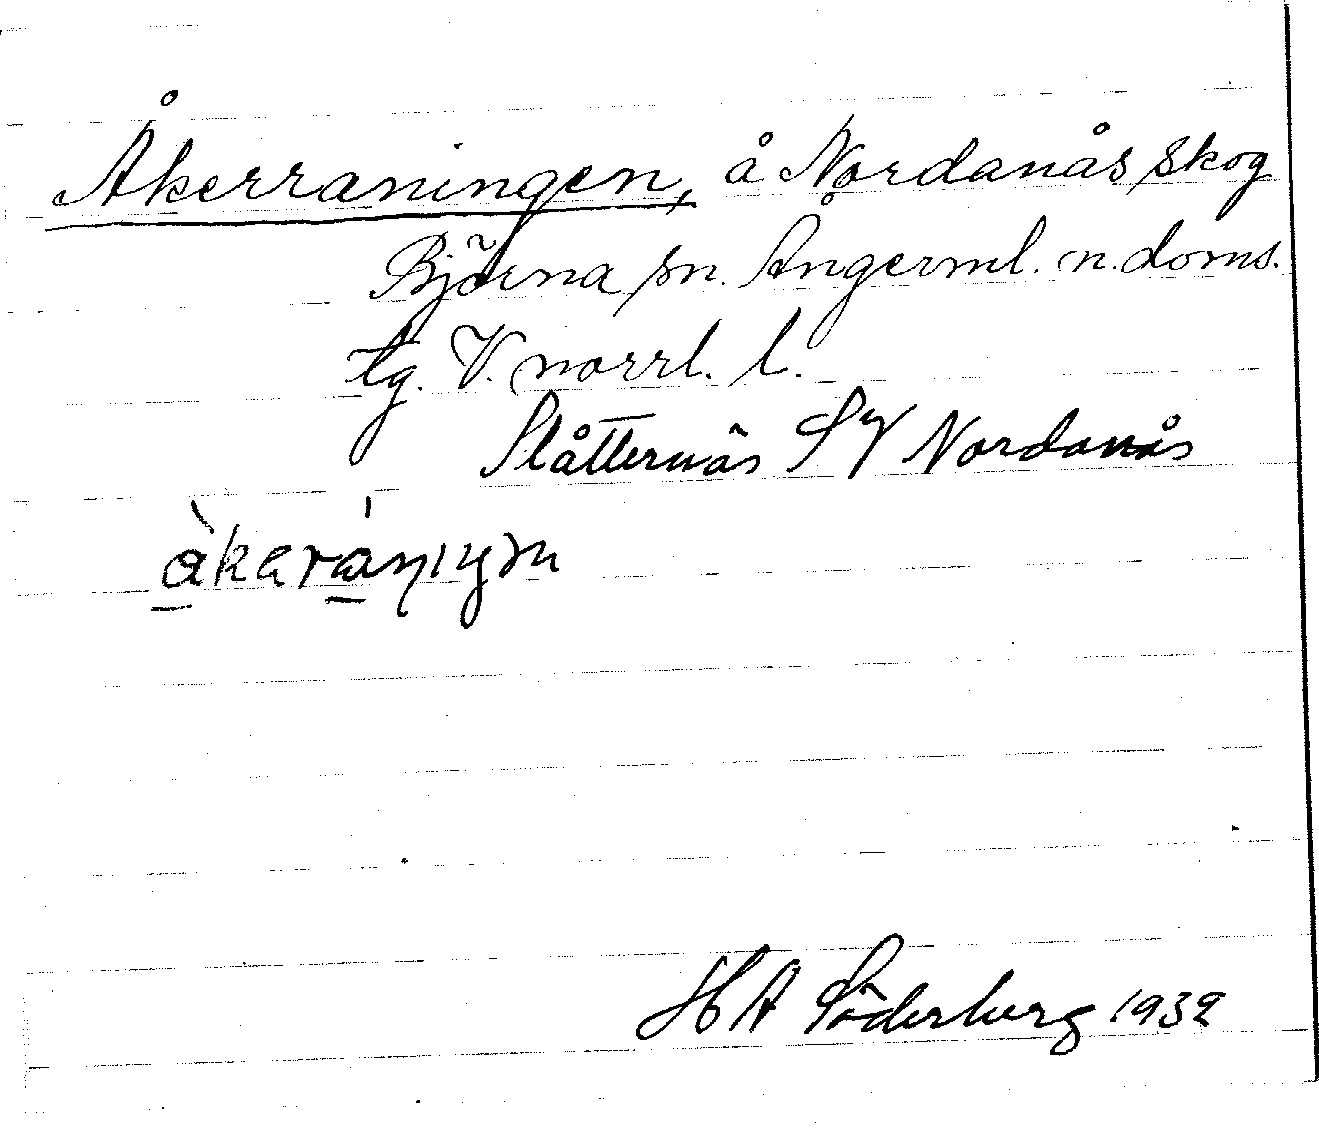 Åkerraningen, å Nordanås skog
Björna sn. Ångerml. n. doms.
tg. V. norrl. l.
Slåtternäs SV Nordanås
àkerániŋɱ
H A Söderberg 1932